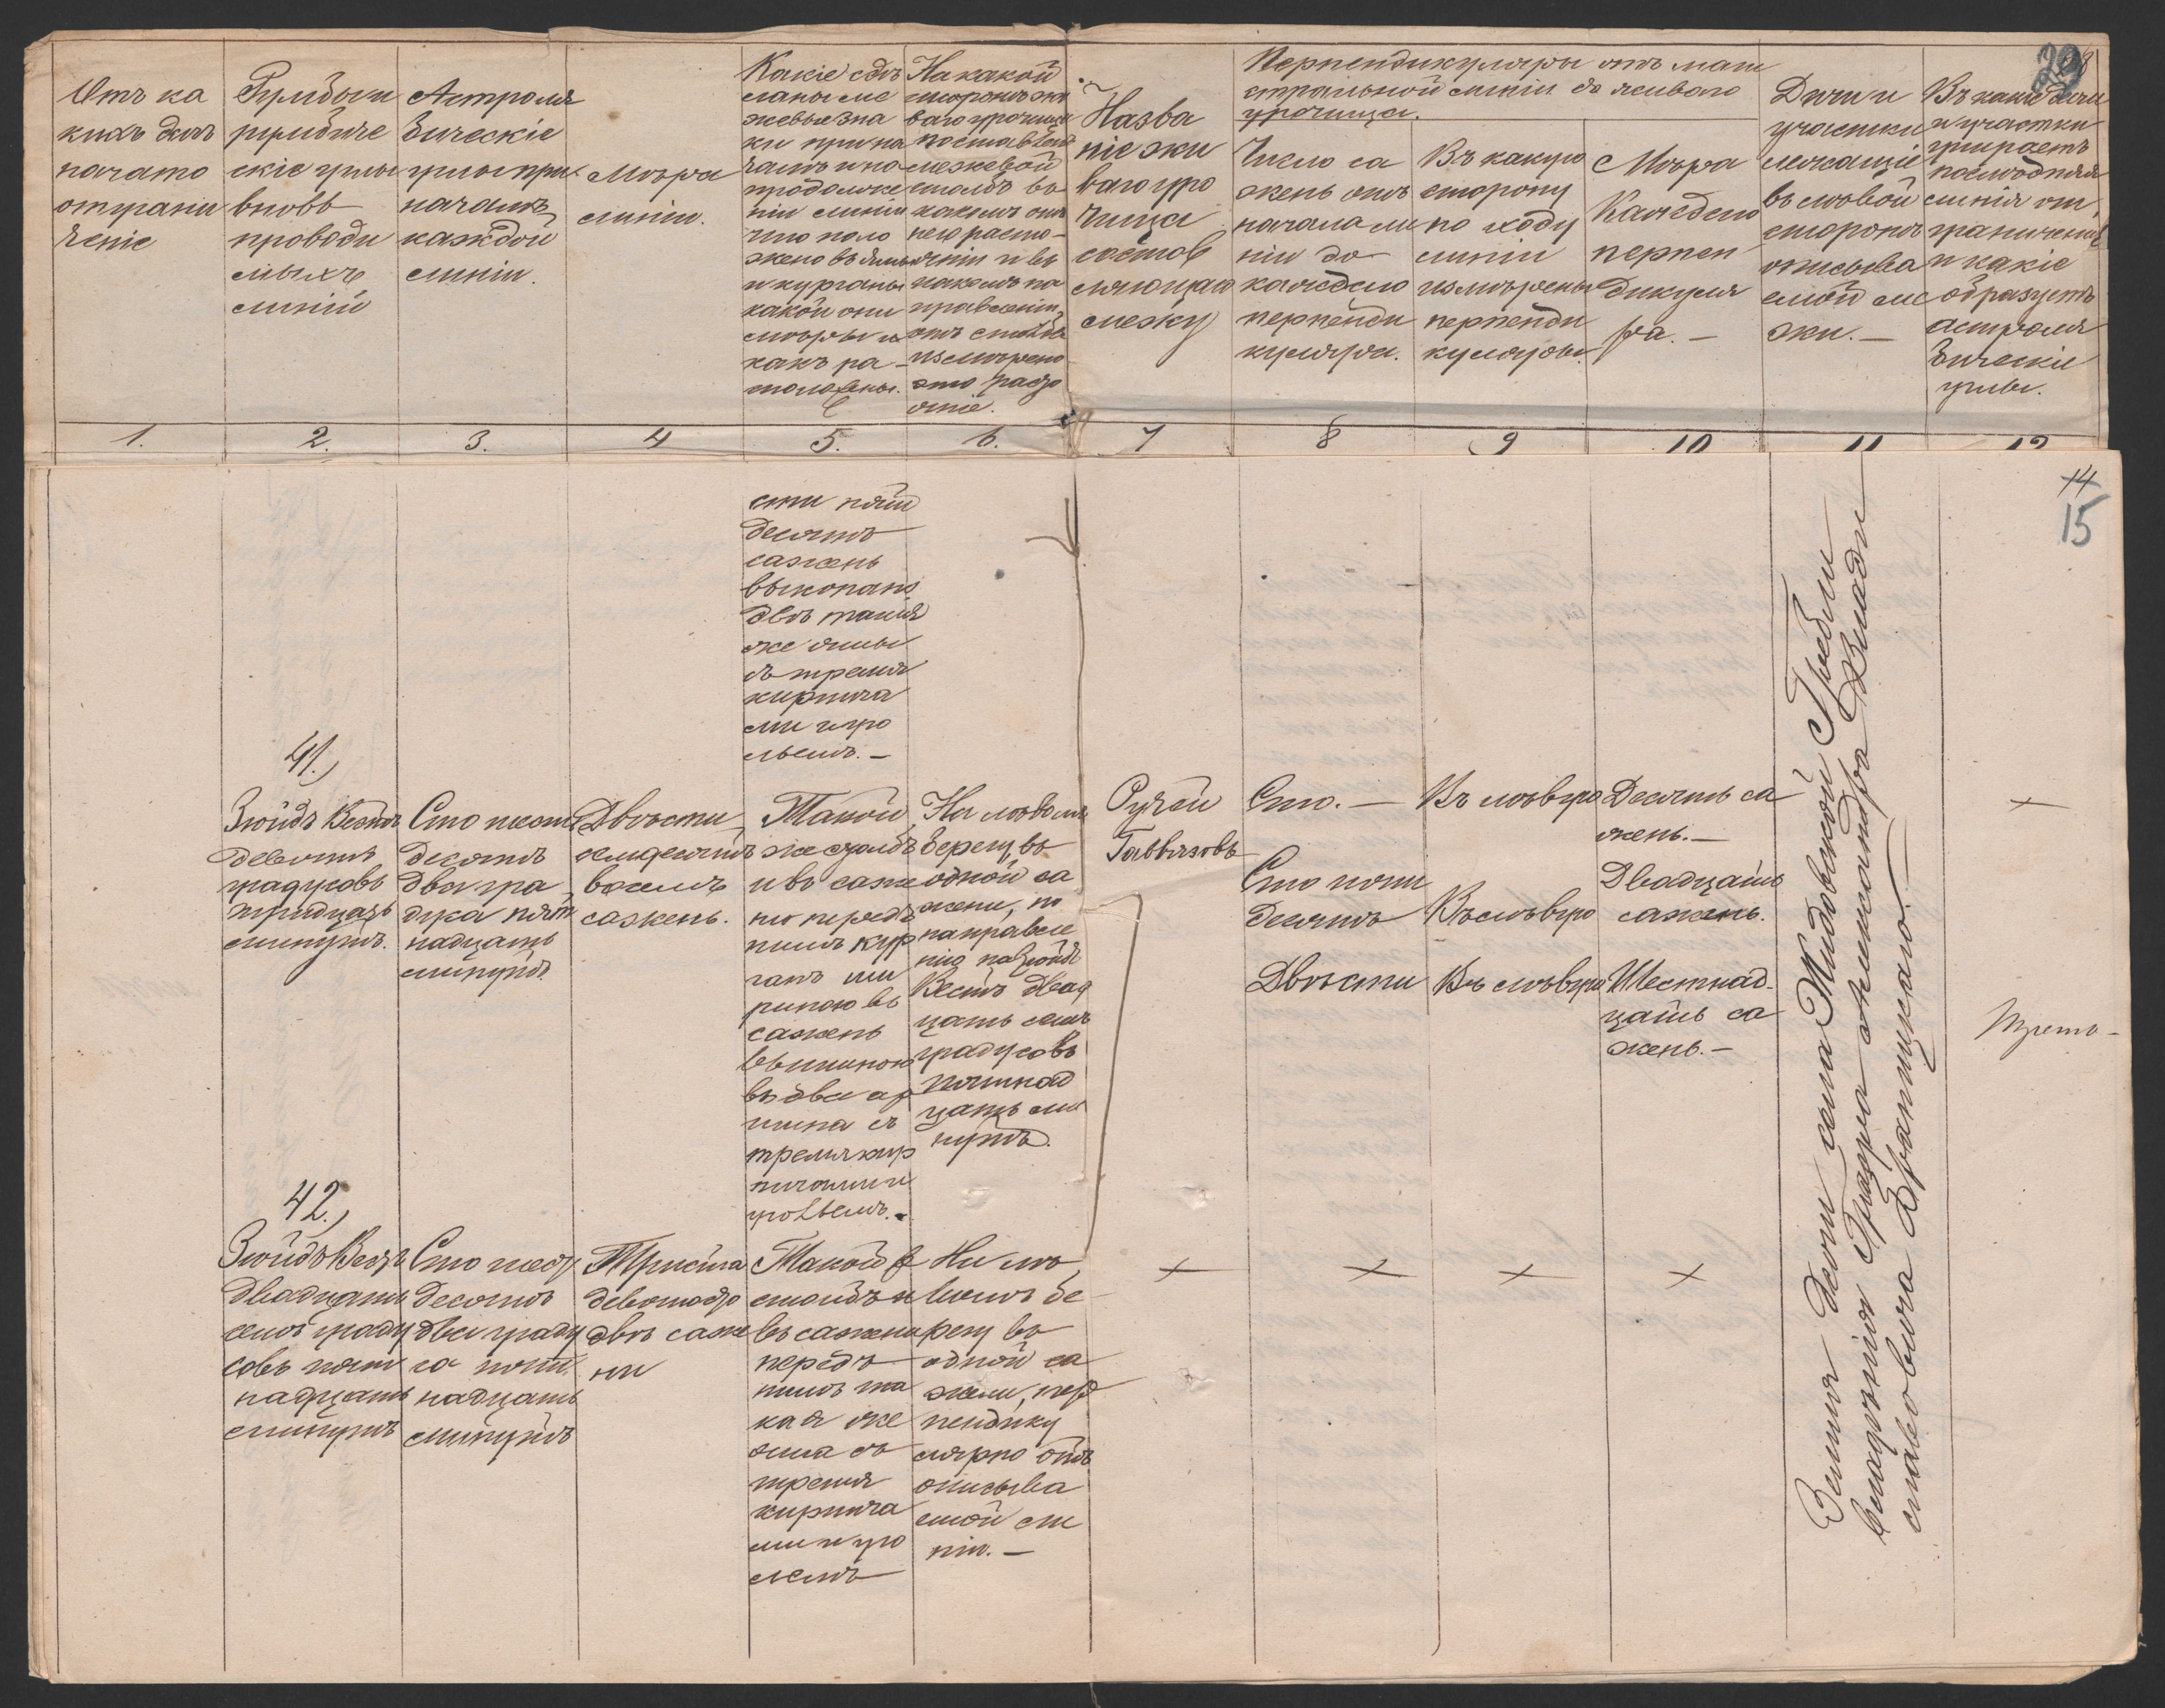 Отъ ка
кихъ дачъ
начато
ограни
ченіе
Румбы и
румбиче
скіе углы
вновь
проводи
мыхъ
линій
Астроля
бическіе
углы при
началѣ
каждой
линіи.
Мѣра
линіи.
Какіе сдѣ
ланы ме
жевые зна
ки при на
чалѣ и на
продолже
ніи линіи
что поло
жено въ ямы
и курганы
какой они
мѣры и
какъ ра-
положены.
На какой
сторонѣ жи
ваго урочища
поставленъ
межевой
столбъ въ
какомъ отъ
него разсто-
яніи и въ
какомъ на
правленіи
отъ столба
измѣрено
это разсто
яніе.
Назва
ніе жи
ваго уро
чища
состав
ляющаго
межу
Перпендикуляры отъ маги
стральной линіи до живаго
урочища.
Число са
жень отъ
начала ли
ніи до
каждаго
перпенди
куляра.
Въ какую
сторону
по ходу
линіи
измѣрены
перпенди
куляры.
Мѣра
каждаго
перпен
дикуля
ра. —
Дачи и
участки
лежащіе
въ лѣвой
сторонѣ
описыва
емой ме
жи. —
Въ какіе дачи
и участки
упираетъ
послѣдняя
линія от
граниченія
и какіе
образуетъ
астроля
бическіе
углы.
1. 2. 3. 4 5. 6. 7 8 9 10 11 12
14
15
сти пять
десятъ
сажень
выкопаны
двѣ такія
же ямы
съ тремя
кирпича
ми и уго
льемъ. —
41.)
Зюйдъ Вестъ
девять
градусовъ
тридцать
минутъ.
Сто шесть
десятъ
два гра
дуса пят
надцать
минутъ.
Двѣсти
семдесятъ
восемь
сажень.
Такой
же столбъ
и въ саже
ни передъ
нимъ кур
ганъ ши
риною въ
сажень
вышиною
въ два ар
шина съ
тремя кир
пичами и
угольемъ. —
На лѣвомъ
берегу въ
одной са
жени, по
направле
нію на Зюйдъ
Вестъ двад
цать семь
градусовъ
пятнад
цать ми
нутъ.
Ручей
Гаввязовъ
Сто. —
Въ лѣвую
Десять са
жень. —
Сто пять
десятъ
Въ лѣвую
Двадцать
сажень.
Двѣсти
Въ лѣвую
Шестнад-
цать са
жень. —
Земля дачи села Жидовской Гребли
владѣнія Графа Александра Влади
славовича Браницкаго. —
42.)
Зюйдъ Вестъ
двадцать
семь граду
совъ пят
надцать
минутъ
Сто шест
десятъ
два граду
са пят
надцать
минутъ
Триста
девяносто
двѣ саже
ни
Такой же
столбъ и
въ сажени
передъ
нимъ та
кая же
яма съ
тремя
кирпича
ми и уго
лемъ
На лѣ
вомъ бе
регу въ
одной са
жени, пер
пендику
лярно отъ
описыва
емой ли
ніи. —